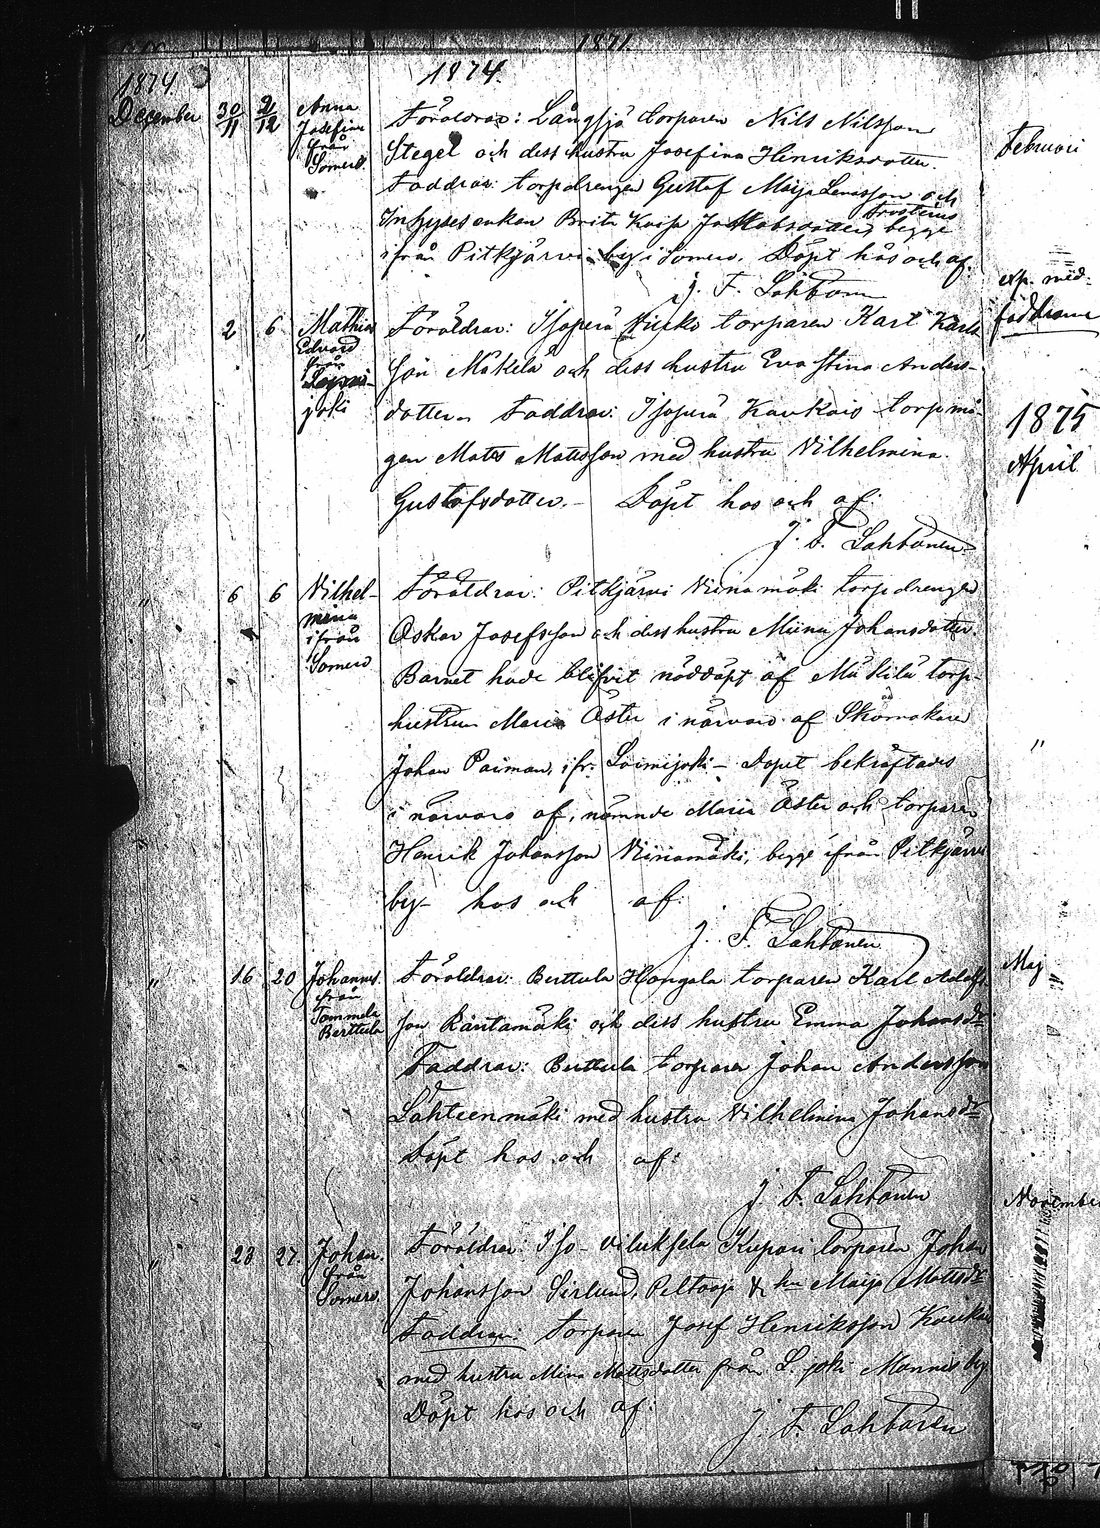 1871.
1874
1874.
December 30/11 2/12 Anna
Josefina
från
Somero.
Föräldrar: Långsjö torparen Nils Nilsson
Stegel och dess hustru Josefina Henriksdotter.
Faddrar: torpdrengen Gustaf Maija Lenasson och
Inhyses enkan Brita Kaisa Jakobsdotter begge
ifrån Pitkjärvi by i Somero. Döpt hos och af
J. F. Lahtonen
" 2 6 Mathias
Edvard
från
Loimi-
joki
Föräldrar: Isoperä torparen Karl Karls
son Mäkelä och dess hustru Eva Stina Anders-
dotter. Faddrar: Isoperä Kaukais torpmå-
gen Matts Mattsson med hustru Vilhelmina
Gustafsdotter. – Döpt hos och af:
J. F. Lahtonen.
" 6 6 Vilhel-
mina
ifrån
Somero
Föräldrar: Pitkjärvi Viinamäki torpdrengen
Oskar Josefsson och dess hustru Miina Johansdotter.
Barnet hade blifvit nöddöpt af Mäkilä torp-
hustrun Maria Öster i närvaro af Skomakare
Johan Paiman, ifr. Loimijoki – Dopet bekräftades
i närvaro af, nämnde Maria Öster och torparen
Henrik Johansson Viinamäki, begge ifrån Pitkjärvi
by – hos och af:
J. F. Lahtonen
" 16 20 Johannes.
från
Tammela
Berttula
Föräldrar: Berttula Hongala torparen Karl Adolfs
son Rautamäki och dess hustru Emma Johansdr
Faddrar: Berttula torparen Johan Andersson
Lähteenmäki med hustru Vilhelmina Johansdr
Döpt hos och af:
J. F. Lahtonen
" 23 27. Johan.
från
Somero.
Föräldrar: Iso-viluksela Kupari torparen Johan
Johansson Sirlund, Peltooja & hu Maija Mattsdr
Faddrar: torparen Josef Henriksson
med hustru Mina Mattsdotter från L. joki Mannis by
Döpt hos och af:
J. F. Lahtonen
Februari
exp. med.
faddrarne
1875
April
"
Maj
"
November